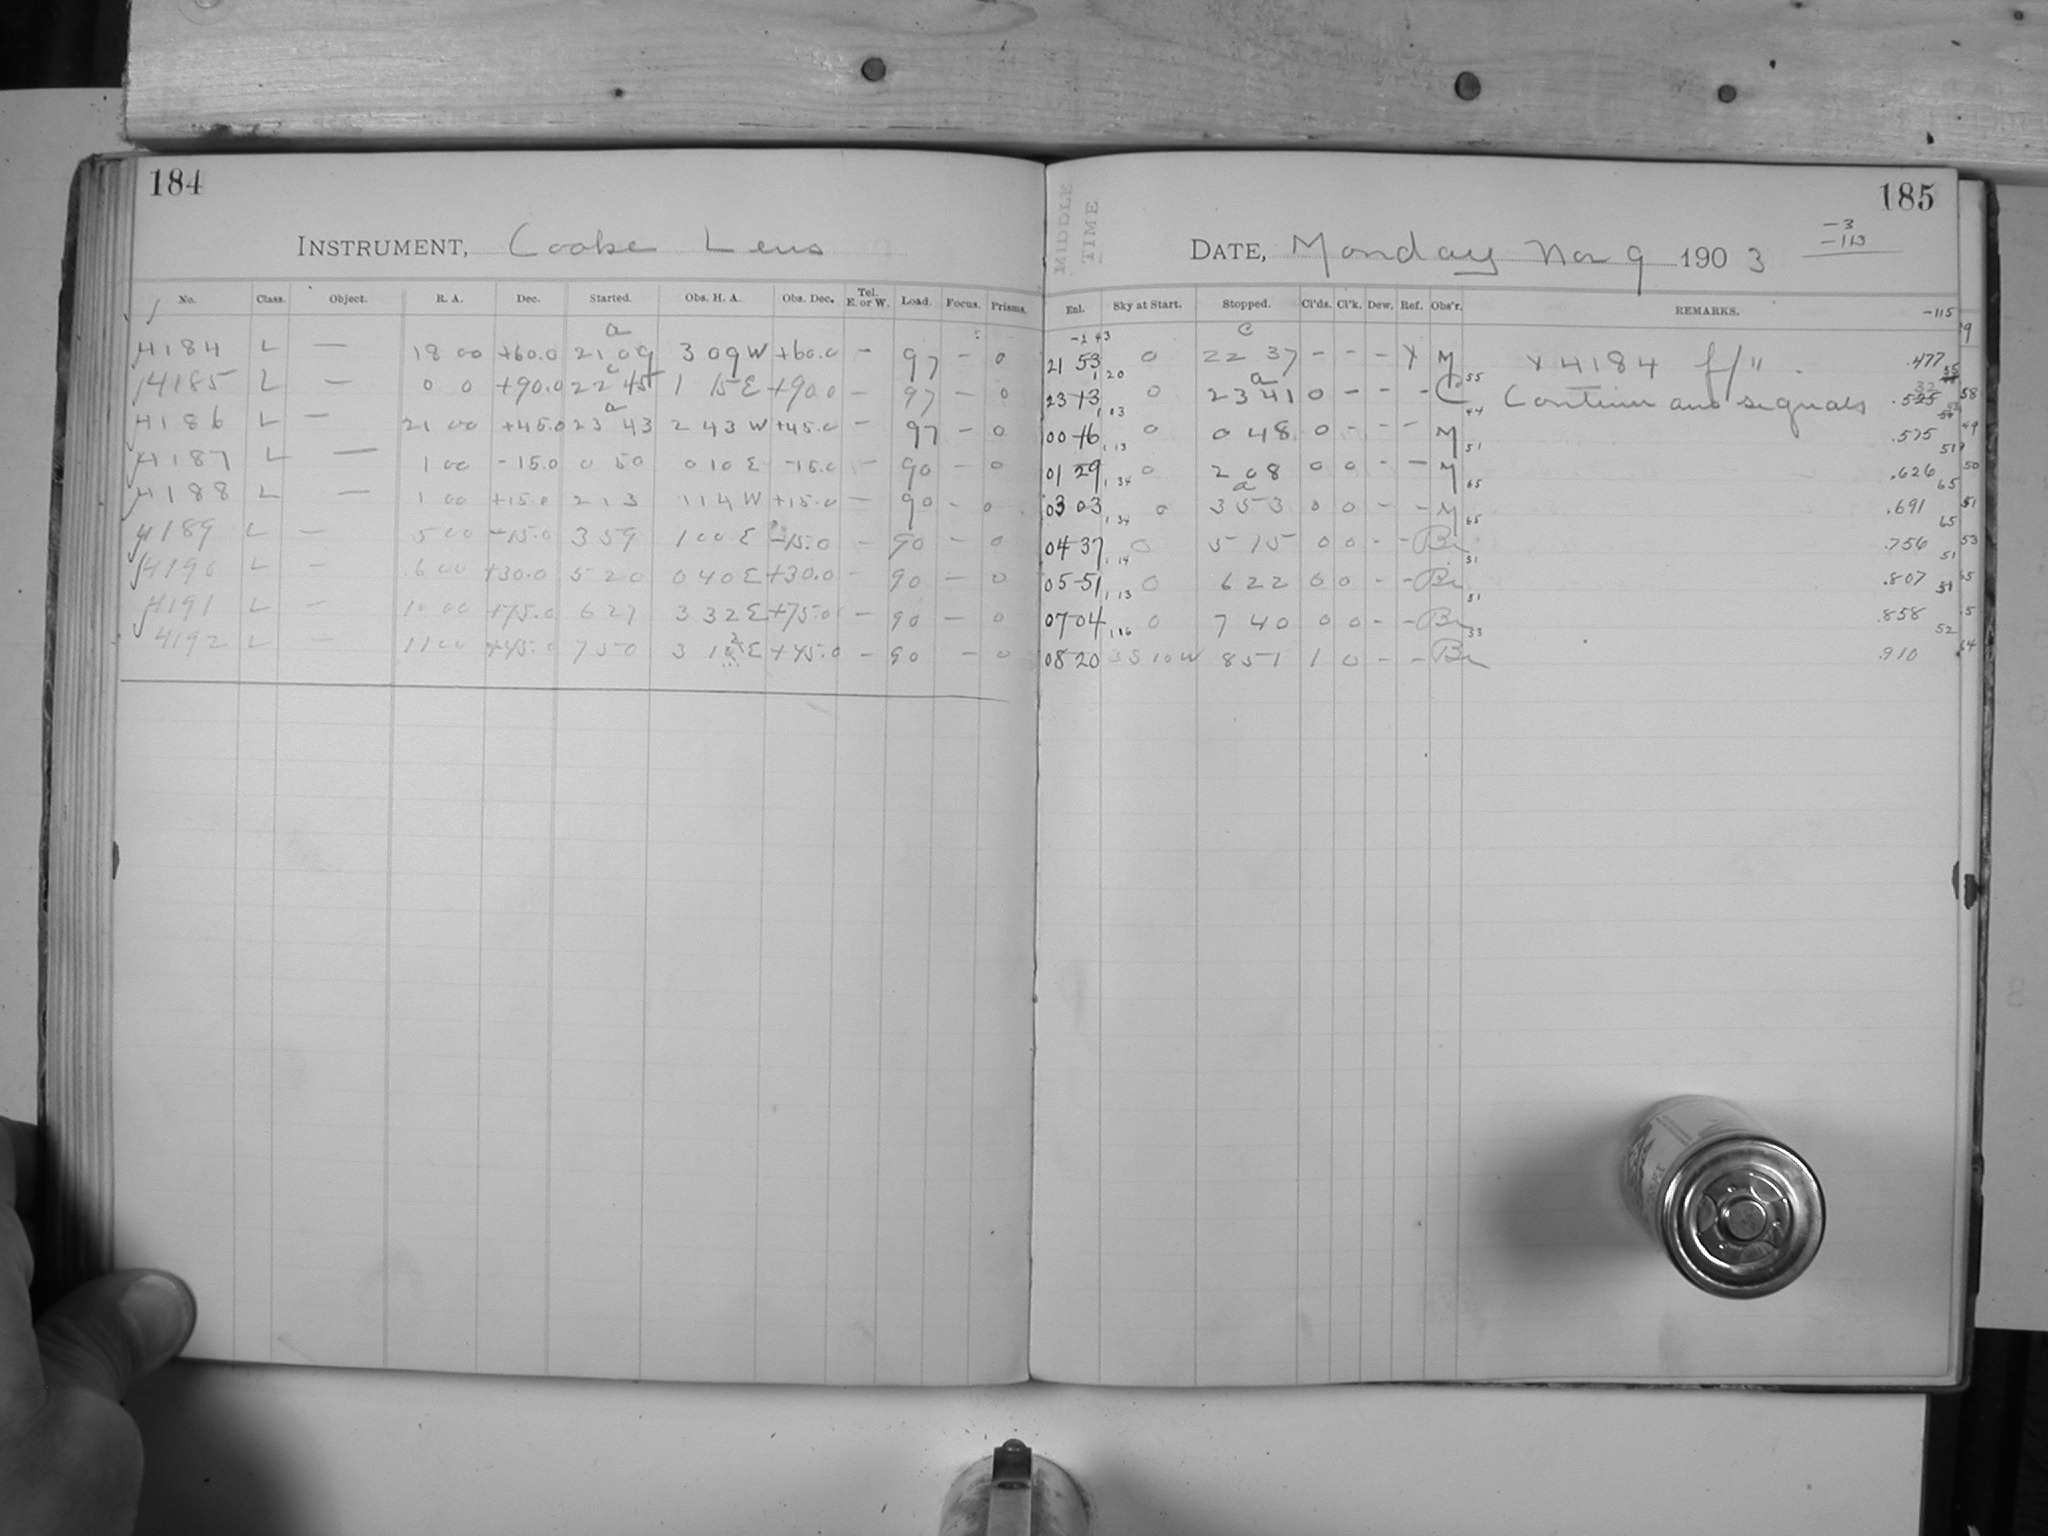 184
INSTRUMENT, Cooke Lens
No. Class. Object. R. A. Dec. Started. Obs. H. A. Obs. Dec. Tel. E. or W. Load. Focus. Prisms.
a
4184 L — 18 00 +60.0 21 09 3 09 W +60.0 — 97 — 0
c
4185 L — 0 0 +90.0 22 45 1 15 E +90.0 — 97 — 0
a
4186 L — 21 00 +45.0 23 43 2 43 W +45.0 — 97 — 0
4187 L — 1 00 -15.0 0 50 0 10 E -15.0 — 90 — 0
4188 L — 1 00 +15.0 2 13 1 14 W +15.0 — 90 — 0
4189 L — 5 00 -15.0 3 59 1 00 E -15.0 — 90 — 0
4190 L — 6 00 +30.0 5 20 0 40 E +30.0 — 90 — 0
4191 L — 10 00 +75.0 6 27 3 32 E +75.0 — 90 — 0
4192 L — 11 00 +45.0 7 50 3 10 E +45.0 — 90 — 0
185
MIDDLE TIME
-3
-113
DATE, Monday Nov 9 1903
Enl. Sky at Start. Stopped. Cl'ds. Cl'k. Dew. Ref. Obs'r. REMARKS. -115
-243 c
21 53 0 22 37 - - - X M X 4184 f/" . .477
1 20 a 55
23 13 0 23 41 0 - - - C Continuous signals .525
1 03 44
00 16 0 0 48 0 - - - M .575
1 13 51
01 29 0 2 08 0 0 - - M .626
1 34 a 65 65
03 03 0 3 53 0 0 - - M .691
1 34 65 65
04 37 0 5 15 0 0 - - Bi .756
1 14 51 51
05 51 0 6 22 0 0 - - Bi .807
1 13 51 51
07 04 0 7 40 0 0 - - Bi .858
1 16 53 52
08 20 3S 10W 8 51 1 0 - - Bi .910